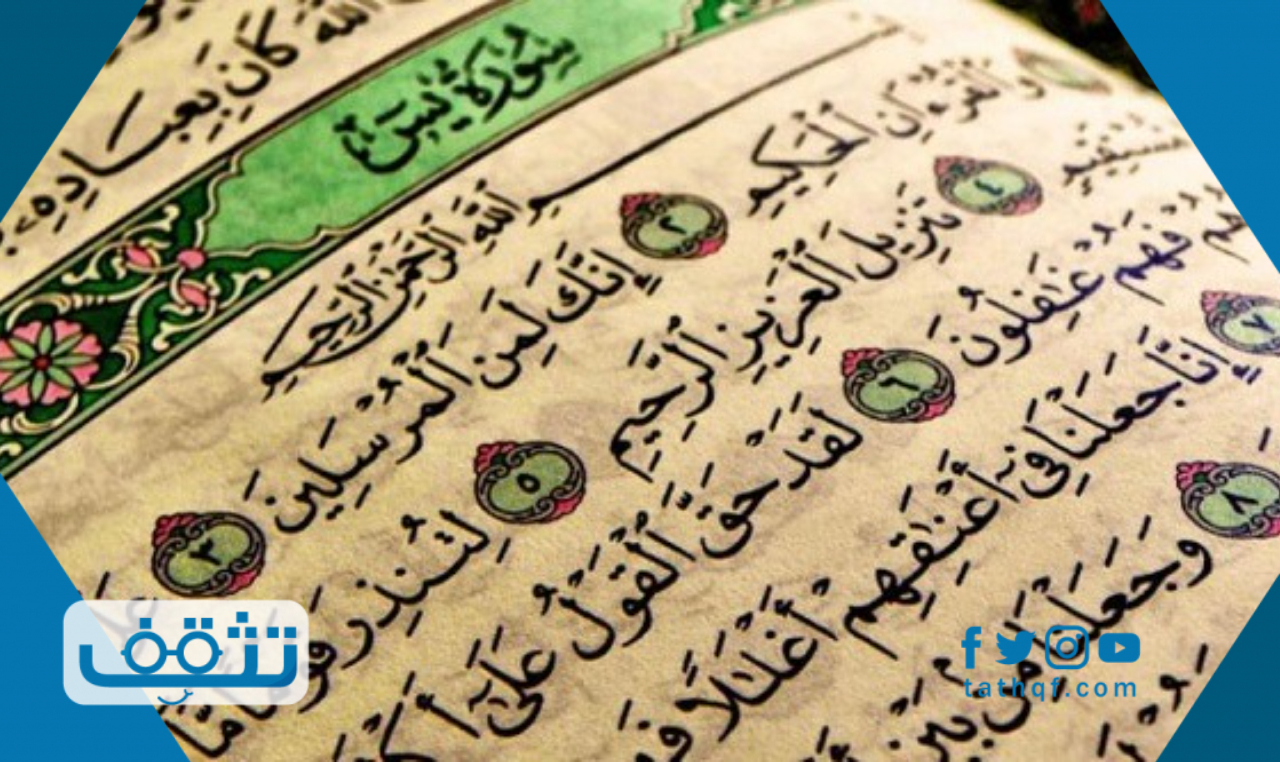 ٱللَّهَ كَانَ بِعِبَادِهِۦ
سُورَةُ يسٓ
بِسْمِ ٱللَّهِ ٱلرَّحْمَٰنِ ٱلرَّحِيمِ
وَٱلْقُرْءَانِ ٱلْحَكِيمِ ٢ إِنَّكَ لَمِنَ ٱلْمُرْسَلِينَ ٣
مُّسْتَقِيمٍ ٤ تَنزِيلَ ٱلْعَزِيزِ ٱلرَّحِيمِ ٥ لِتُنذِرَ قَوْمًا مَّآ
فَهُمْ غَٰفِلُونَ ٦ لَقَدْ حَقَّ ٱلْقَوْلُ عَلَىٰٓ
٧ إِنَّا جَعَلْنَا فِىٓ أَعْنَٰقِهِمْ أَغْلَٰلًا
٨ وَجَعَلْنَا مِنۢ بَيْنِ
تثقف
tathqf.com